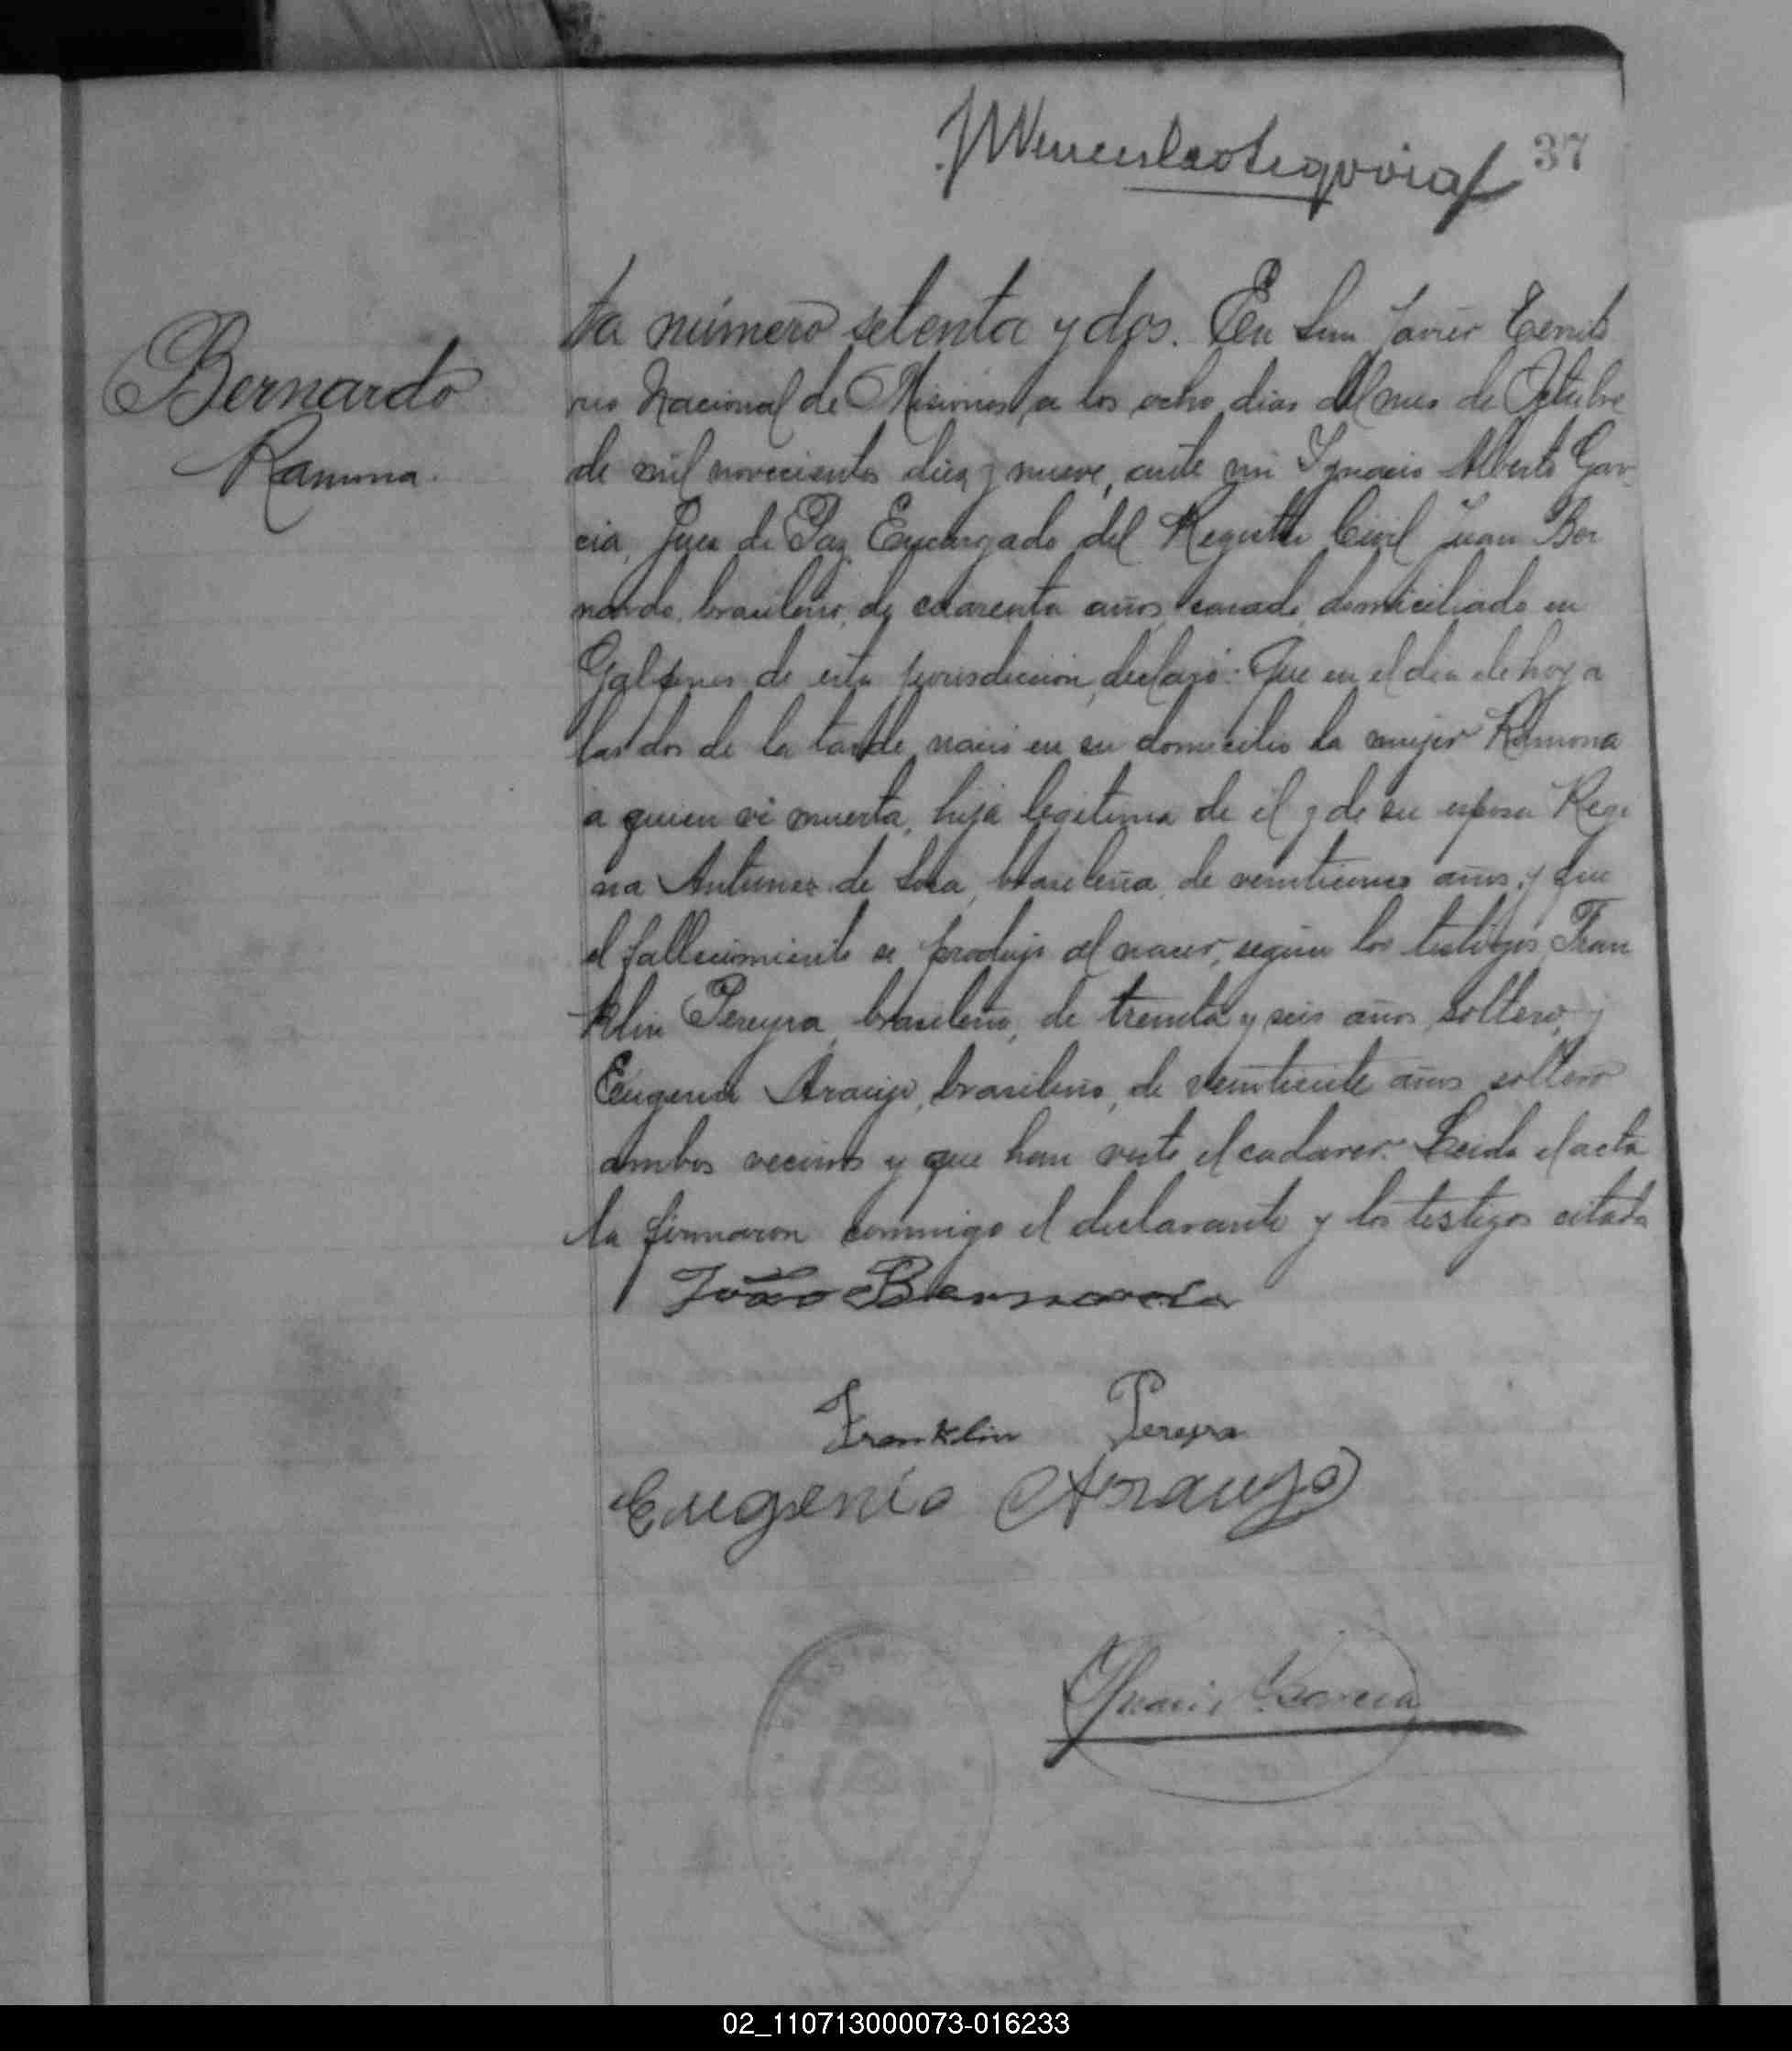 37
Bernardo
Ramona.
ta número setenta y dos. En San Javier Territo
rio Nacional de Misiones, a los ocho dias del mes de Octubre
de mil novecientos diez y nueve, ante mi Ygnacio Alberto Gar
cia, Juez de Paz Encargado del Registro Civil Juan Ber
nardo, brasileño, de cuarenta años, casado, domiciliado en
de esta jurisdiccion, declaró: Que en el dia de hoy a
las dos de la tarde, nació en su domicilio la mujer Ramona
a quien vi muerta, hija legitima de él y de su esposa Regi
na Antunez de brasileña, de años, y que
el fallecimiento se produjo al nacer, segun los testigos Fran
klin Pereyra, brasileño, de treinta y seis años, soltero, y
Eugenio Araujo, brasileño, de veintisiete años soltero
ambos vecinos y que han visto el cadaver. Leida el acta
la firmaron conmigo el declarante y los testigos citados
João Bernardo
Franklin Pereyra
Eugenio Araujo
Ygnacio A. Garcia
02_110713000073-016233